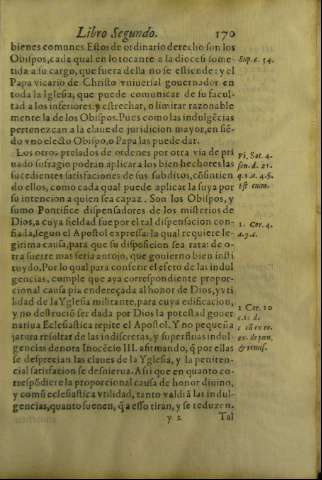 Libro Segundo. 170
bienes comunes Estos de ordinario derecho son los
Obispos, cada qual en lo tocante a la diocesi some-
tida a su cargo, que fuera della no se estiende: y el
Papa vicario de Christo vniuersal gouernador en
toda la Iglesia, que puede comunicar de su facul-
tad a los inferiores: y estrechar, o limitar razonable
mente la de los Obispos. Pues como las indulgẽcias
pertenezcan a la claue de juridicion mayor, en siẽ-
do vno electo Obispo, o Papa las puede dar.
Los otros prelados de ordenes por otra via de pri
uado sufragio podran aplicar a los bien hechores las
sucedientes satisfaciones de sus subditos, cõsintien
do ellos, como cada qual puede aplicar la suya por
su intencion a quien sea capaz. Son los Obispos, y
sumo Pontifice dispensadores de los misterios de
Dios, a cuya fieldad fue por el tal dispensacion con-
fiada, segun el Apostol expressa: la qual requiere le-
gitima causa, para que su disposicion sea rata: de o-
tra suerte mas seria antojo, que gouierno bien insti
tuydo. Por lo qual para conseguir el efeto de las indul
gencias, cumple que aya correspondiente propor-
cional causa pia endereçada al honor de Dios, y vti
lidad de la Yglesia militante, para cuya edificacion,
y no destruciõ ser dada por Dios la potestad gouer
natiua Ecclesiastica repite el Apostol. Y no pequeña
jatura resultar de las indiscretas, y superfluas indul-
gencias denota Inocẽcio III. afirmando, q̃ por ellas
se desprecian las claues de la Yglesia, y la peniten-
cial satisfacion se desnierua. Asi que en quanto co-
rrespõdiere la proporcional causa de honor diuino,
y comũ ecclesiastica vtilidad, tanto valdrã las indul-
gencias, quanto suenen, q̃ a esso tiran, y se reduzen.
y 2 Tal
Sup. c. 14.
Vi, Sot. 4.
sen. d. 21.
q. 2. a. 4. &
1. Cor. 4.
2 Cor. 10